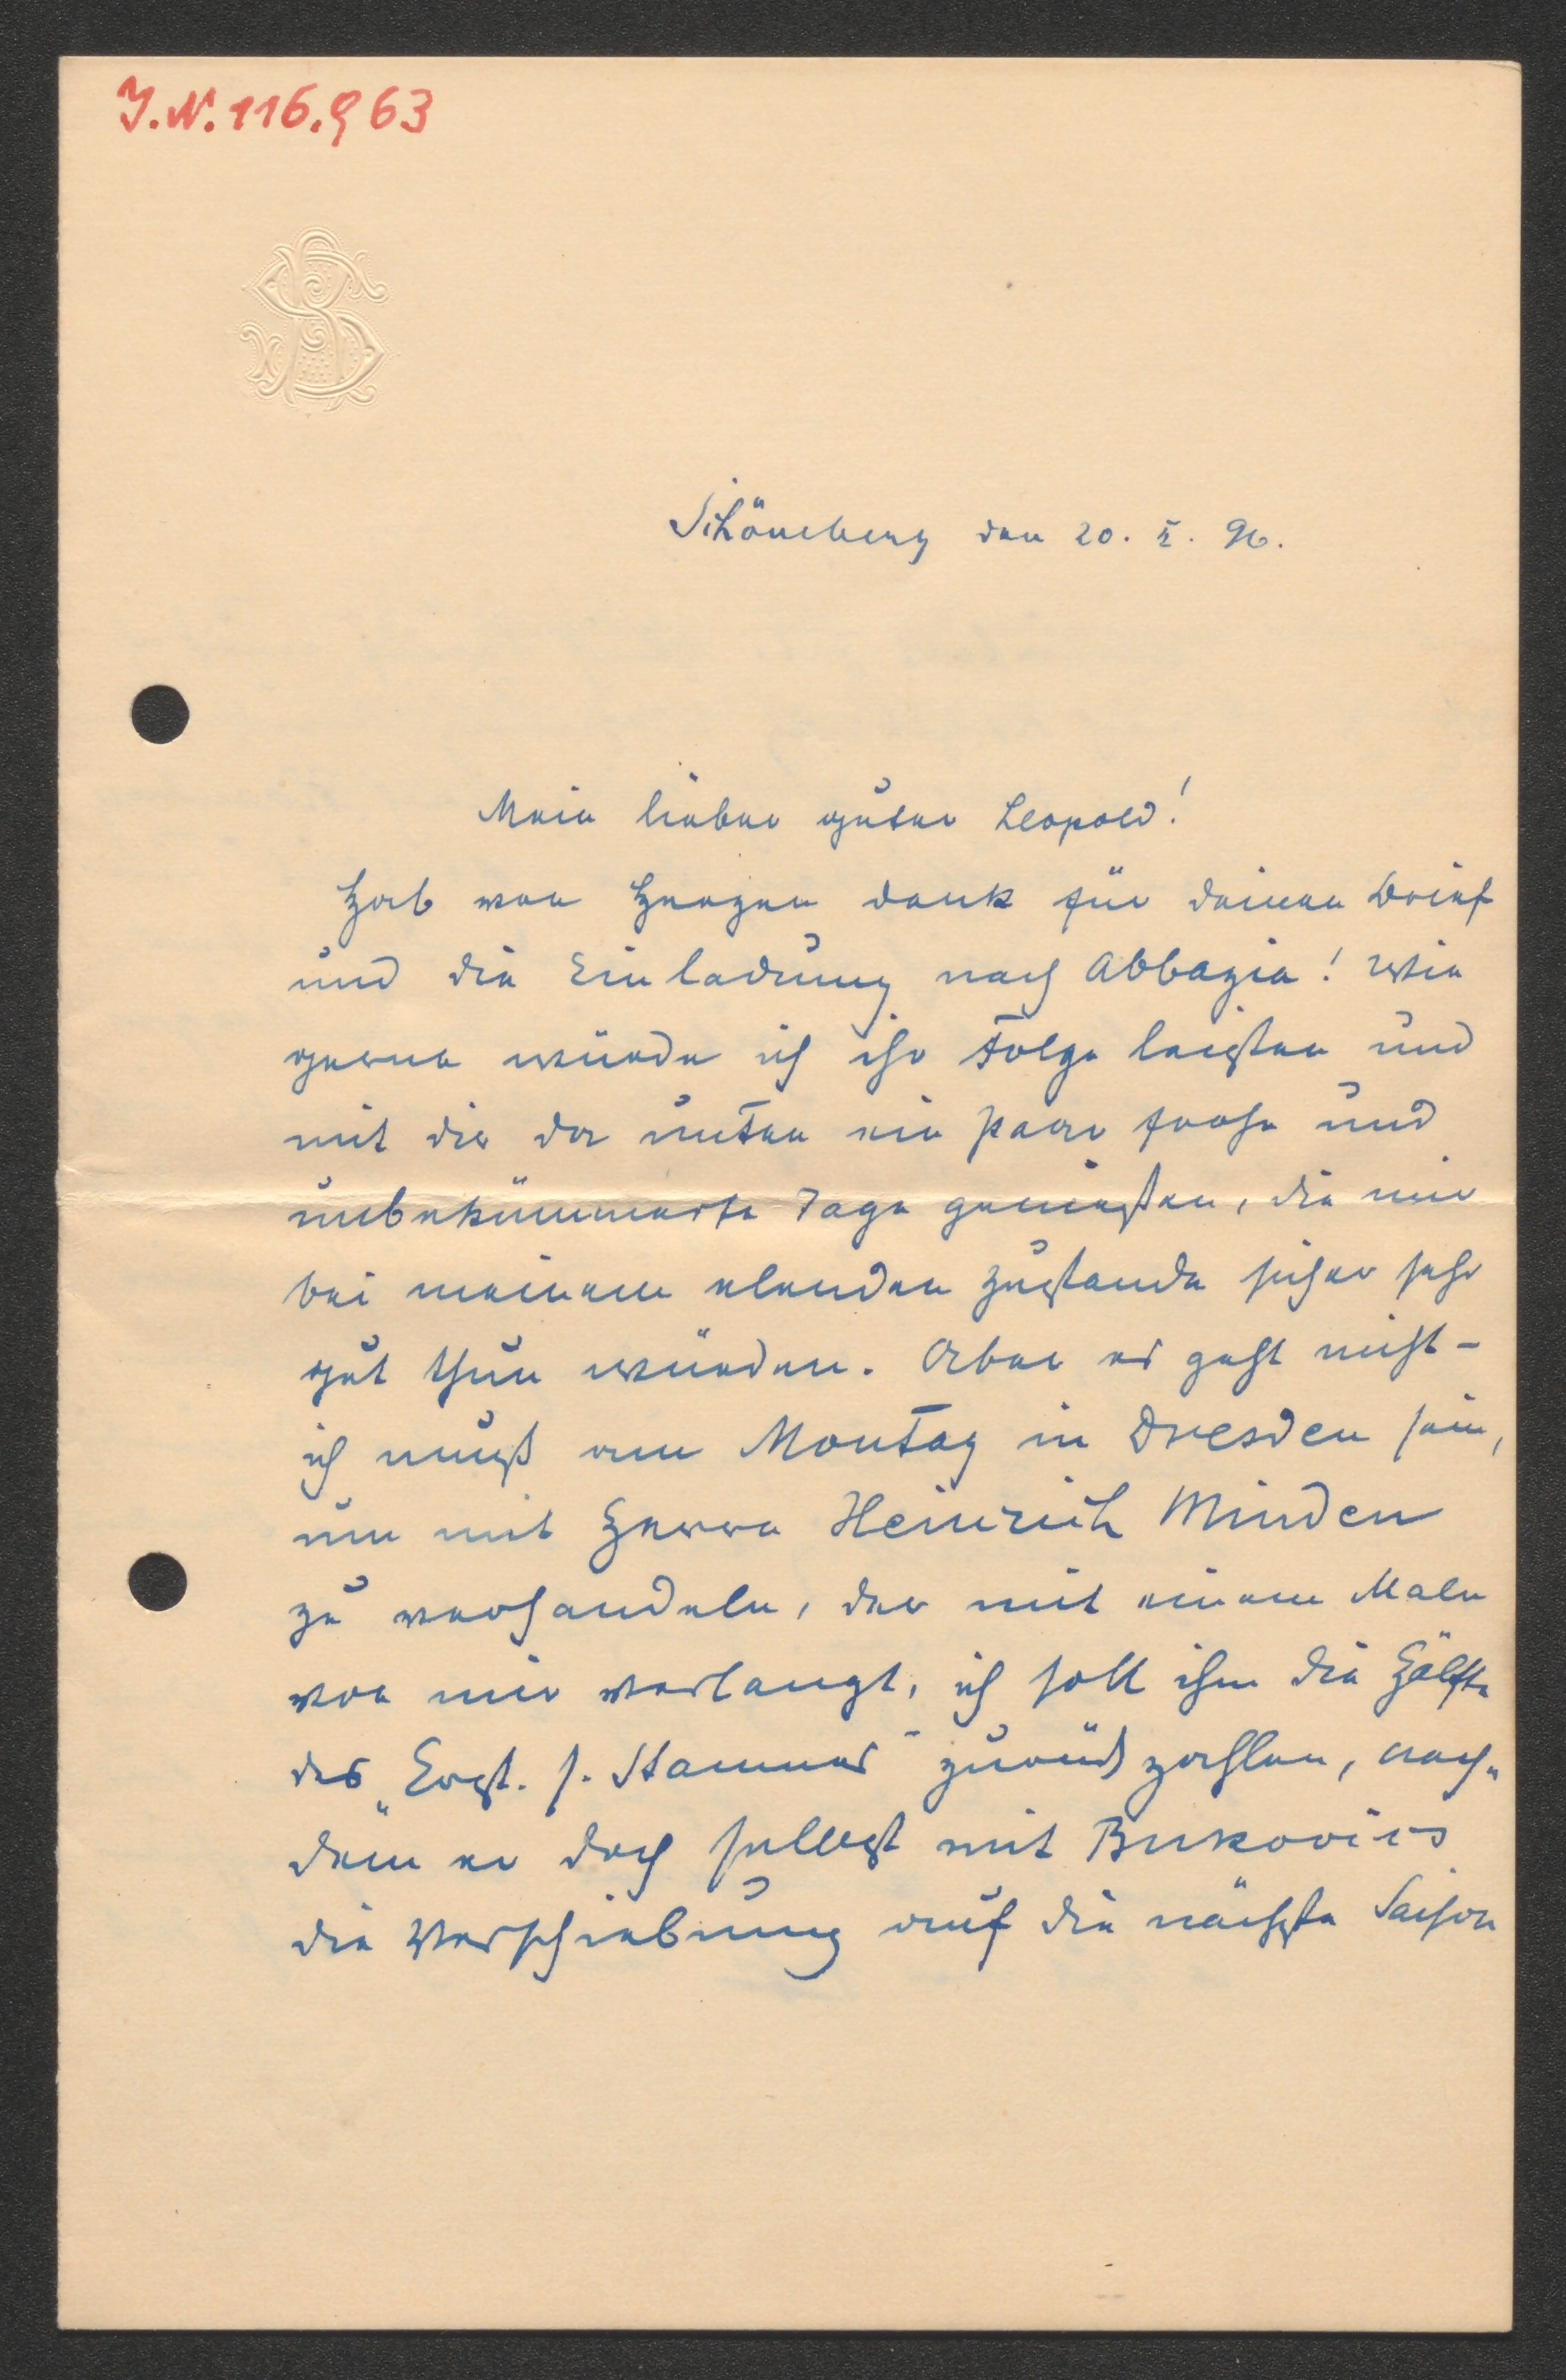 J.N. 116.963
Schöneberg den 20. X. 96.
Mein lieber guter Leopold!
Hab von Herzen dank für deinen Brief
und die Einladung nach Abbazia! Wie
gerne würde ich ihr Folge leisten und
mit dir da unten ein paar frohe und
unbekümmerte Tage genießen, die mir
bei meinem elenden Zustande sicher sehr
gut thun würden. Aber es geht nicht -
ich muß am Montag in Dresden sein,
um mit Herrn Heinrich Minden
zu verhandeln, der mit einem Male
von mir verlangt, ich soll ihm die Hälfte
des „Erst. s. Stammes" zurückzahlen, nach„
dem er doch selbst mit Bukovics
die Verschiebung auf die nächste Saison